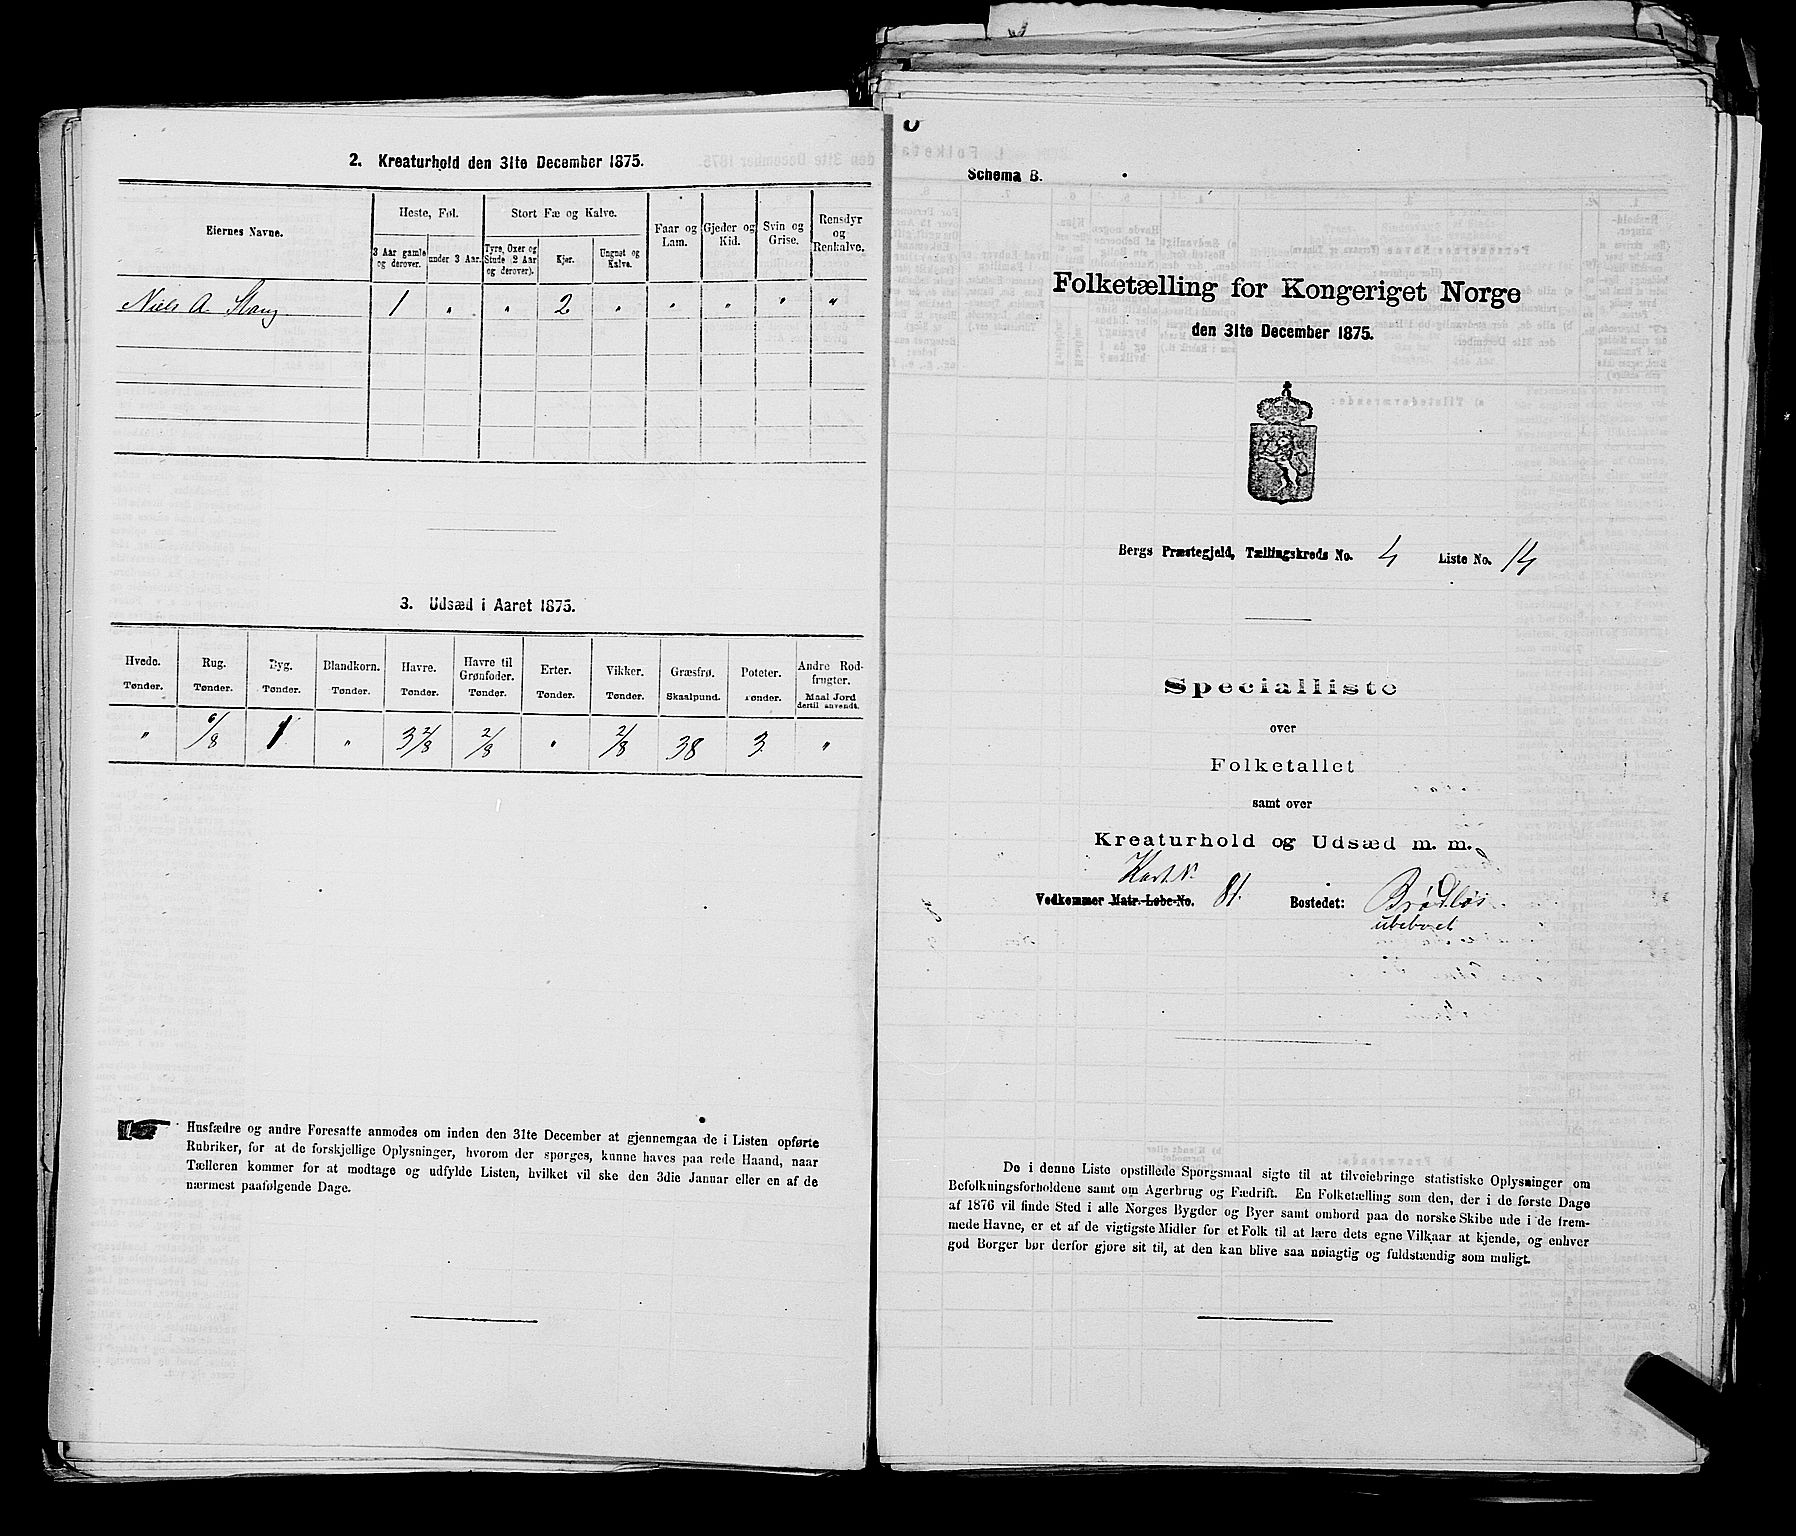 2. Kreaturhold den 31te December 1875.
Eiernes Navne.
Heste, Føl.
3 Aar gamle og derover.
under 3 Aar.
Stort Fæ og Kalve.
Tyre, Oxer og Stude (2 Aar og derover).
Kjør.
Ungnøt og Kalve.
Faar og Lam.
Gjeder og Kid.
Svin og Grise.
Rensdyr og Renkalve.
Niels A. Stang 1 " " 2 " " " " "
3. Udsæd i Aaret 1875.
Hvede. Rug. Byg. Blandkorn. Havre. Havre til Grønfoder. Erter. Vikker. Græsfrø. Poteter. Andre Rodfrugter.
Tønder. Tønder. Tønder. Tønder. Tønder. Tønder. Tønder. Tønder. Skaalpund. Tønder. Maal Jord dertil anvendt.
" 6/8 1 " 3 2/8 2/8 " 2/8 38 3 "
Husfædre og andre Foresatte anmodes om inden den 31te December at gjennemgaa de i Listen opførte
Rubriker, for at de forskjellige Oplysninger, hvorom der spørges, kunne haves paa rede Haand, naar
Tælleren kommer for at modtage og udfylde Listen, hvilket vil ske den 3die Januar eller en af de
nærmest paafølgende Dage.
Schema B.
Folketælling for Kongeriget Norge
den 31te December 1875.
Bergs Præstegjeld, Tællingskreds No. 4 Liste No. 14
Specialliste
over
Folketallet
samt over
Kreaturhold og Udsæd m. m.
Kart N.
Vedkommer Matr.-Løbe-No. 81. Bostedet: Brödløs
ubeboet
De i denne Liste opstillede Spørgsmaal sigte til at tilveiebringe statistiske Oplysninger om
Befolkningsforholdene samt om Agerbrug og Fædrift. En Folketælling som den, der i de første Dage
af 1876 vil finde Sted i alle Norges Bygder og Byer samt ombord paa de norske Skibe ude i de frem-
mede Havne, er et af de vigtigste Midler for et Folk til at lære dets egne Vilkaar at kjende, og enhver
god Borger bør derfor gjøre sit til, at den kan blive saa nøiagtig og fuldstændig som muligt.